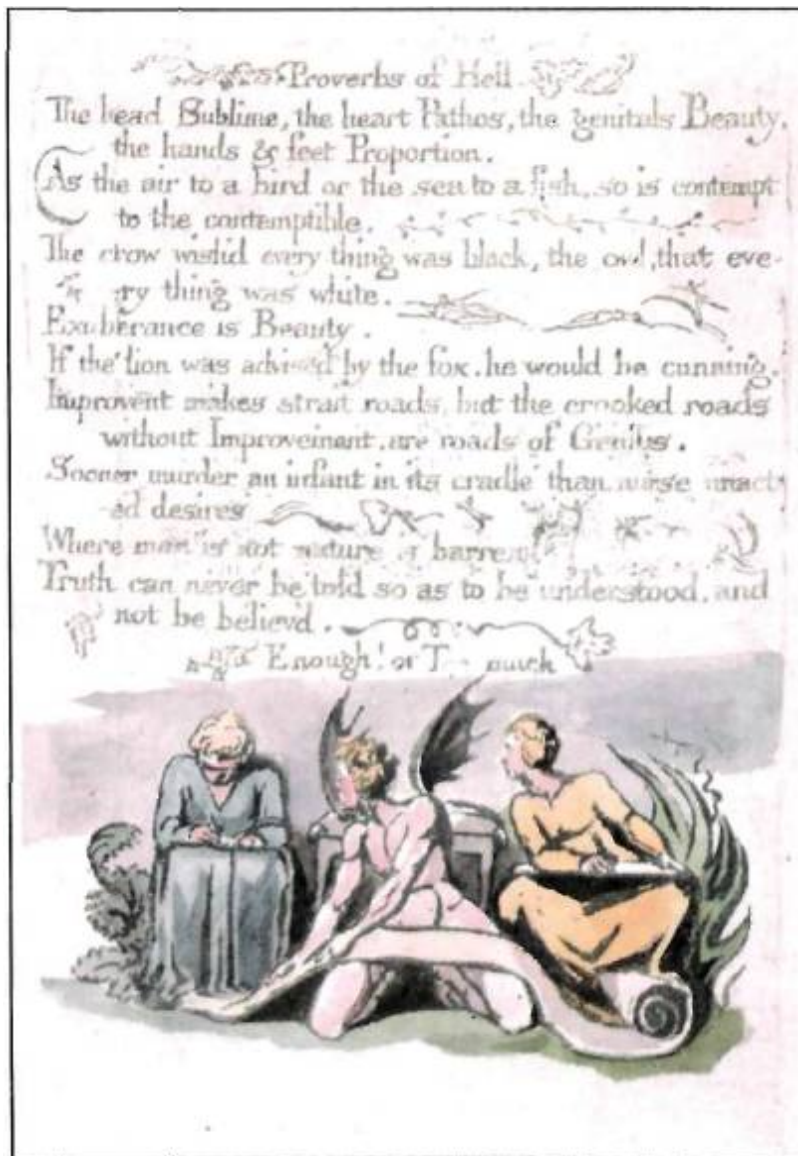 Proverbs of Hell.
The head Sublime, the heart Pathos, the genitals Beauty,
the hands & feet Proportion.
As the air to a bird or the sea to a fish, so is contempt
to the contemptible.
The crow wish'd every thing was black, the owl, that eve-
ry thing was white.
Exuberance is Beauty.
If the lion was advised by the fox. he would be cunning.
Improvent makes strait roads, but the crooked roads
without Improvement, are roads of Genius.
Sooner murder an infant in its cradle than nurse unact-
ed desires
Where man is not nature is barren.
Truth can never be told so as to be understood, and
not be believ'd.
Enough! or much